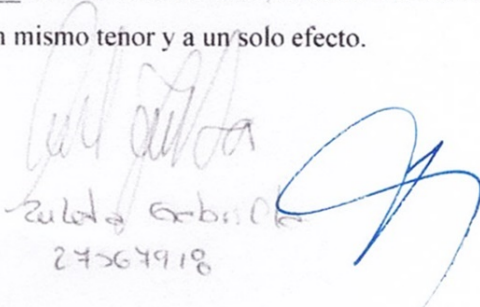 n mismo tenor y a un solo efecto.
Zuleta Gabriela
27367918